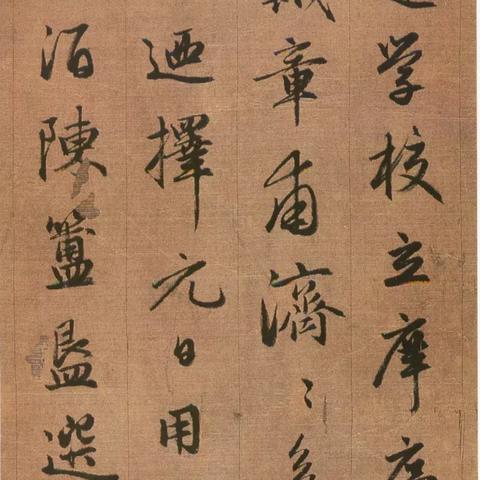 学校立庠
章甫濟〻
迺擇元日用
陳簠簋選